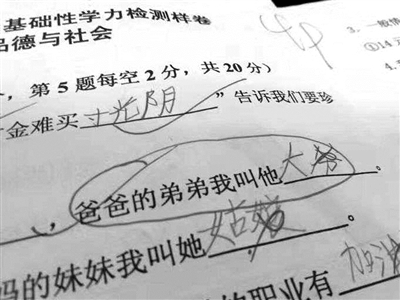 基础性学力检测样卷
品德与社会
3. 一般情
①14元
，第5题每空2分，共20分）
金难买寸光阴”告诉我们要珍
，爸爸的弟弟我叫他大爷。
妈的妹妹我叫她姑娘。
的职业有